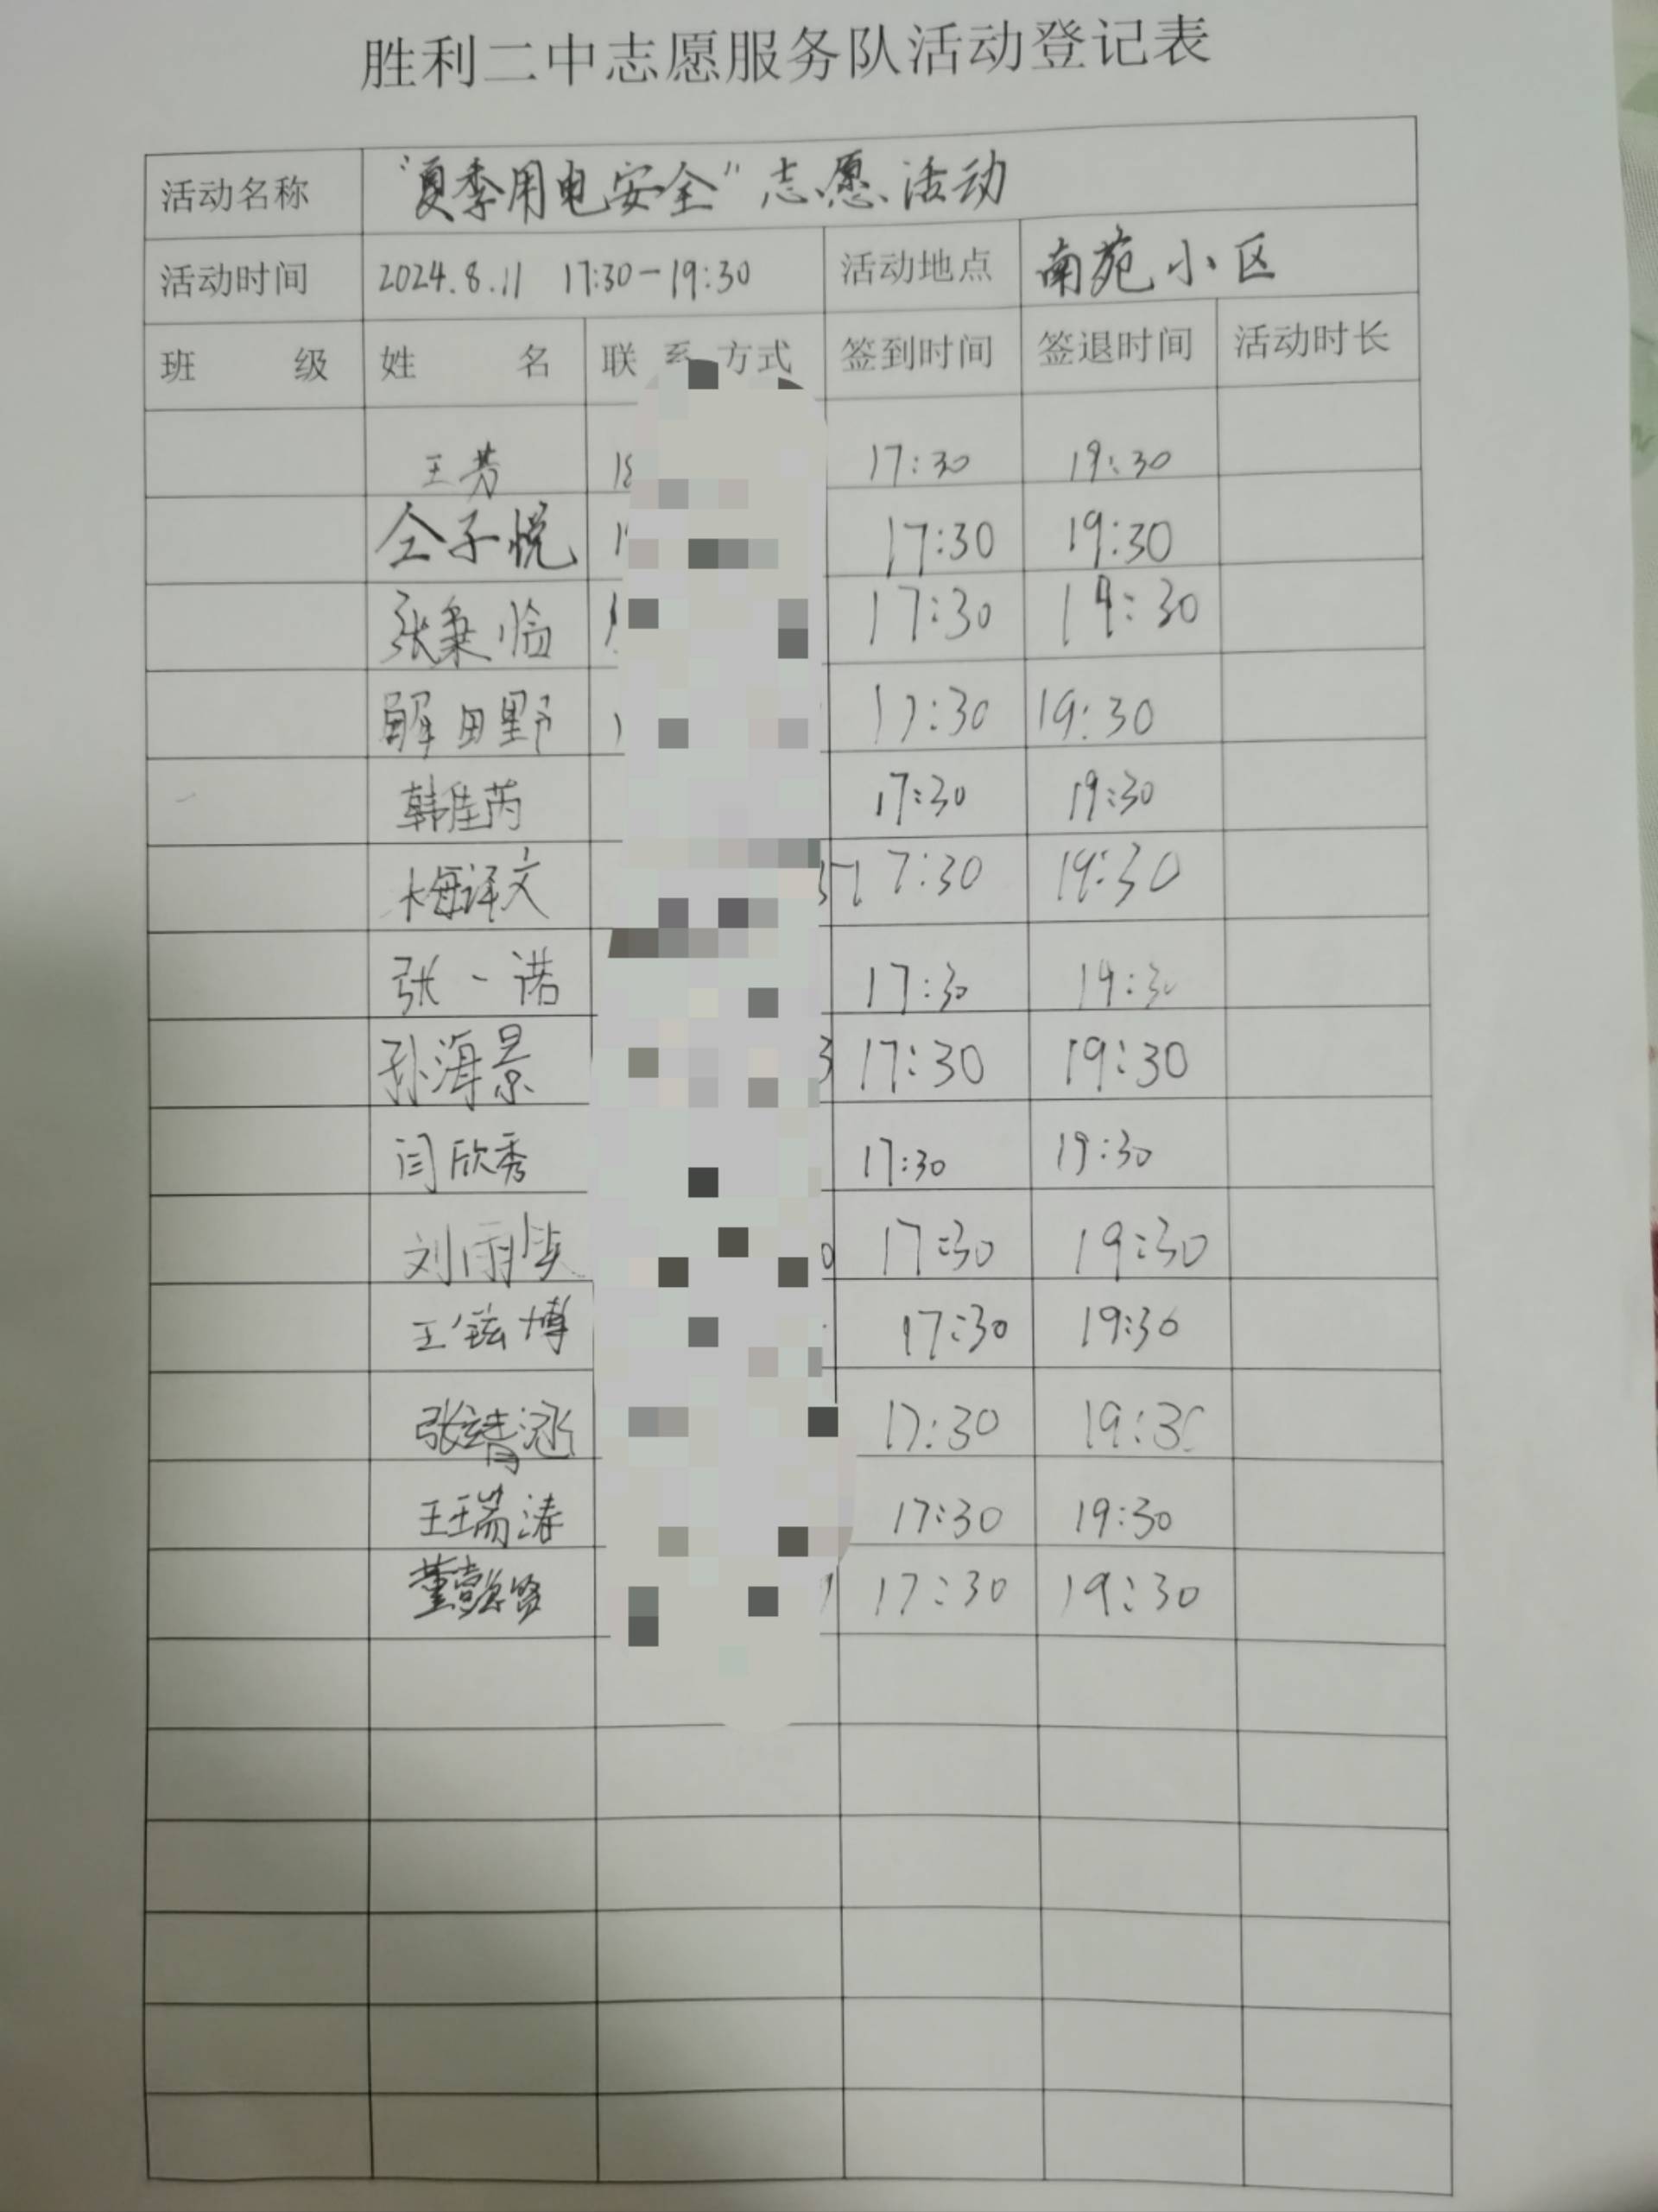 胜利二中志愿服务队活动登记表
活动名称 “夏季用电安全”志愿活动
活动时间 2024.8.11 17:30-19:30 活动地点 南苑小区
班 级 姓 名 联系方式 签到时间 签退时间 活动时长
王芳 18 17:30 19:30
仝子悦 17:30 19:30
张秉怡 17:30 19:30
解田野 17:30 19:30
韩佳芮 17:30 19:30
梅译文 17:30 19:30
张一诺 17:30 19:30
孙海景 3 17:30 19:30
闫欣秀 17:30 19:30
刘雨 0 17:30 19:30
王铉博 17:30 19:30
张靖涵 17:30 19:30
王瑞涛 17:30 19:30
董 17:30 19:30